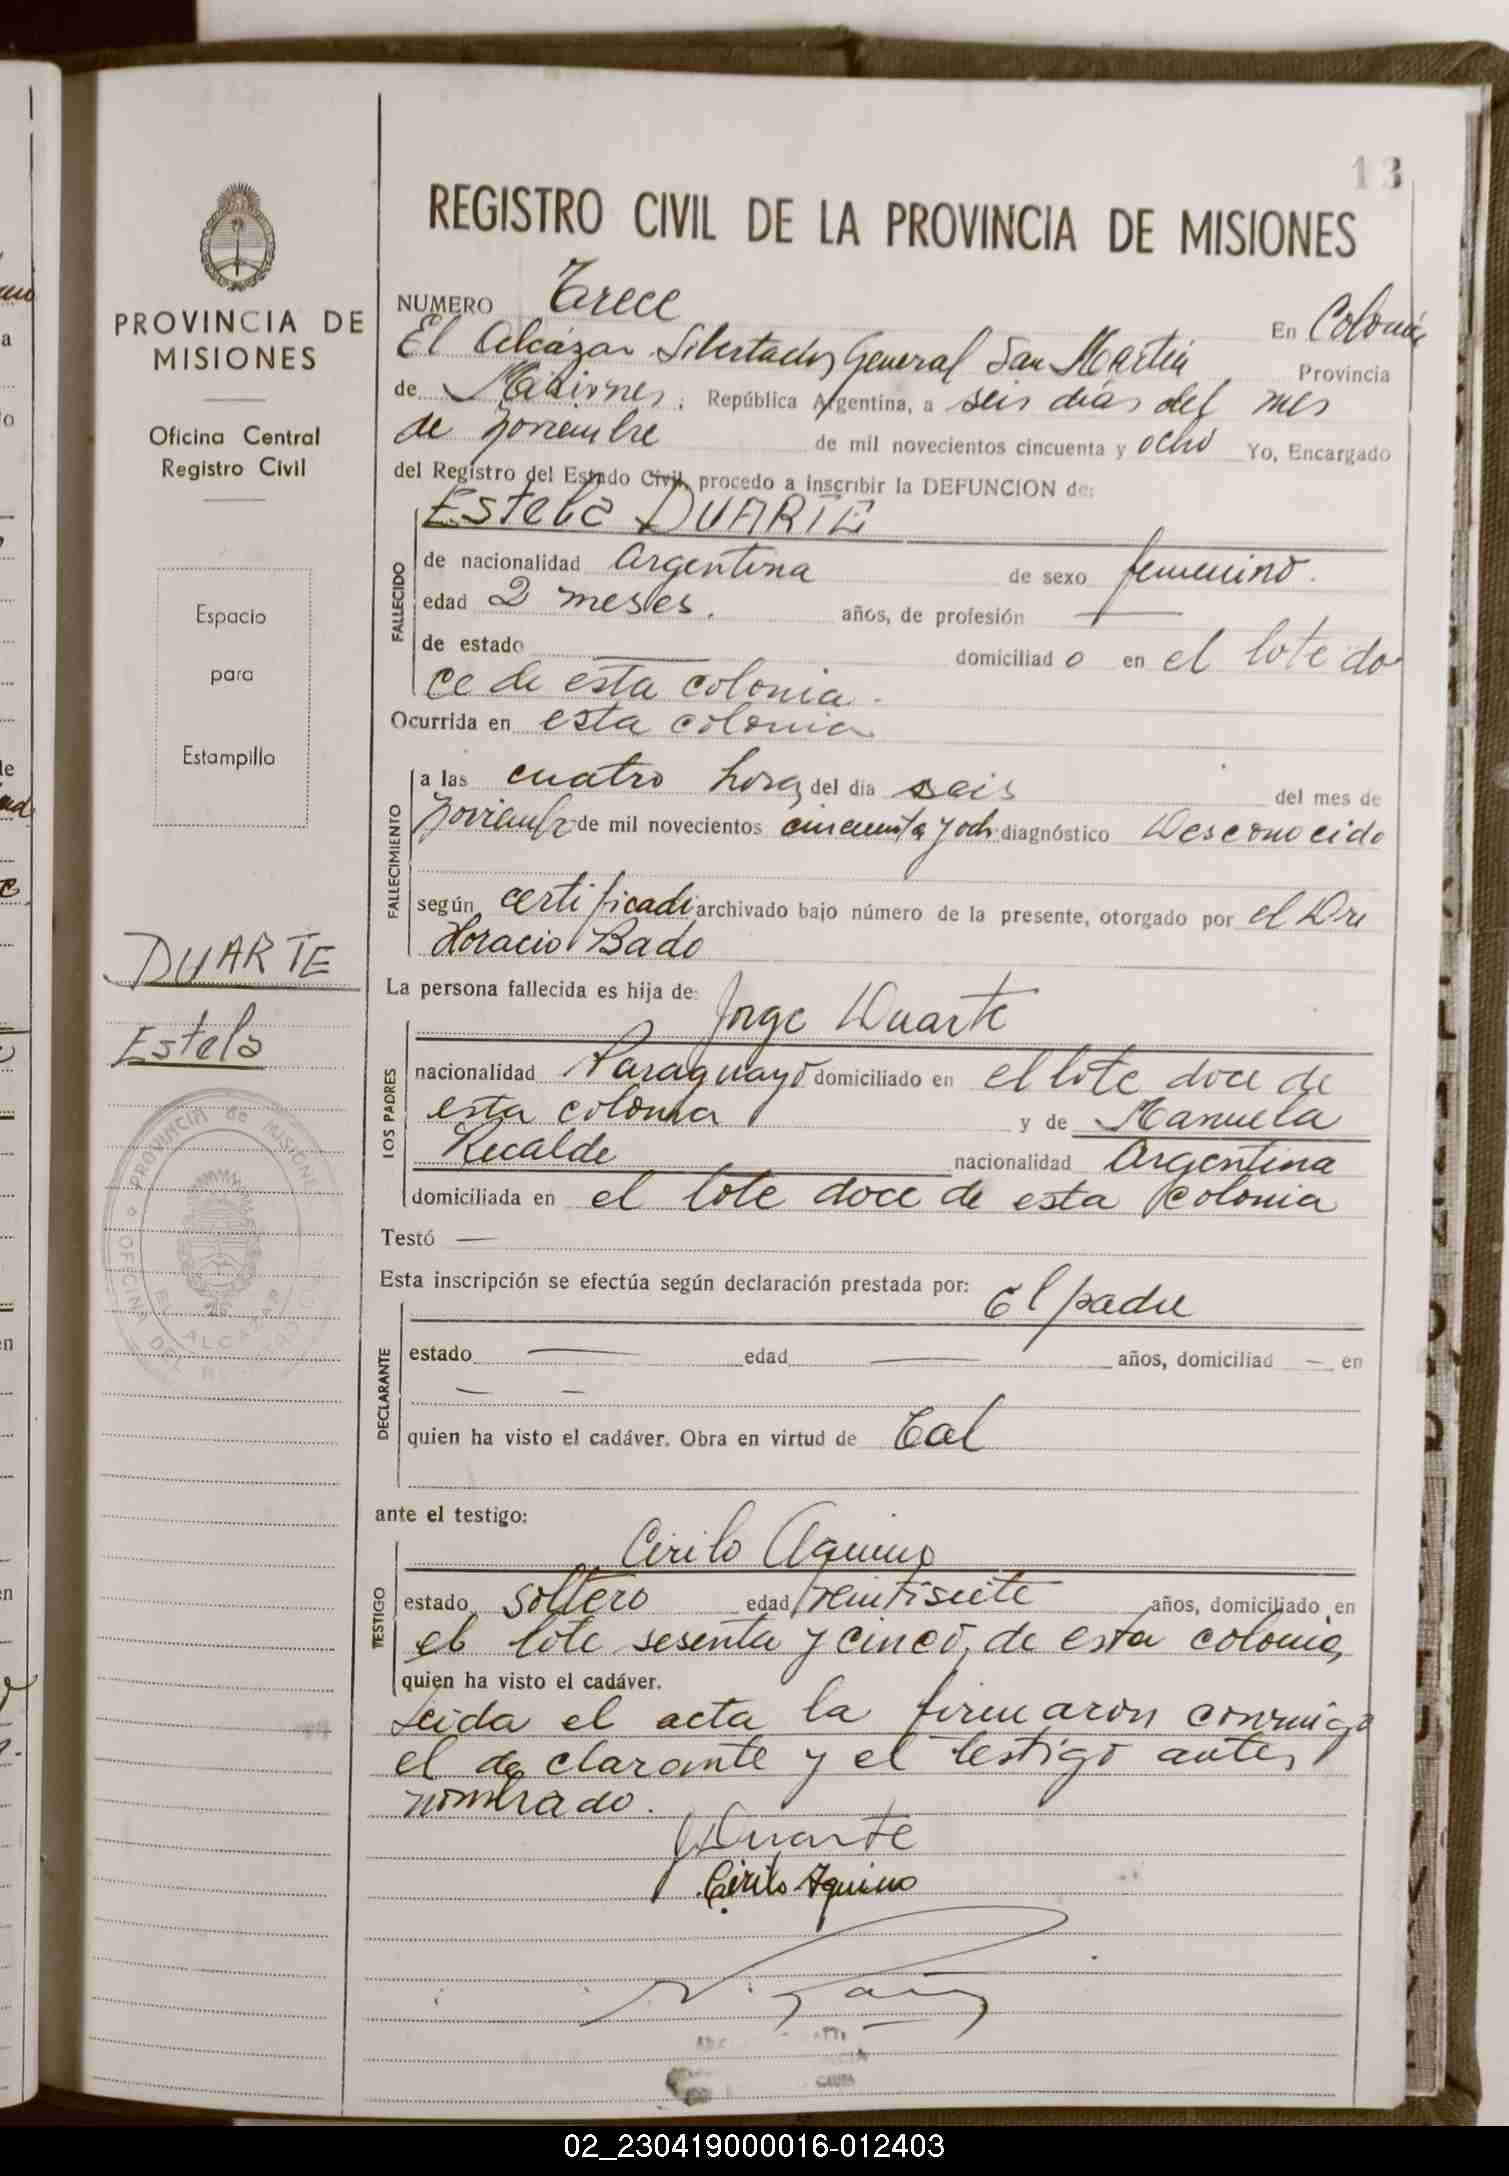 13
REGISTRO CIVIL DE LA PROVINCIA DE MISIONES
PROVINCIA DE
MISIONES
Oficina Central
Registro Civil
Espacio
para
Estampilla
DUARTE
Estela
PROVINCIA de MISIONES
OFICINA DEL REGISTRO CIVIL
EL ALCAZAR
NUMERO Trece En Colonia
El Alcázar Libertador General San Martin Provincia
de Misiones, República Argentina, a seis días del mes
de Noviembre de mil novecientos cincuenta y ocho Yo, Encargado
del Registro del Estado Civil, procedo a inscribir la DEFUNCION de:
Estela DUARTE
FALLECIDO
de nacionalidad Argentina de sexo femenino.
edad 2 meses. años, de profesión —
de estado — domiciliad o en el lote do
ce de esta colonia.
Ocurrida en esta colonia
FALLECIMIENTO
a las cuatro horas del día seis del mes de
Noviembre de mil novecientos cincuenta y och diagnóstico Desconocido
según certificado archivado bajo número de la presente, otorgado por el Dr
Horacio Bado
La persona fallecida es hija de:
Jorge Duarte
LOS PADRES
nacionalidad Paraguayo domiciliado en el lote doce de
esta colonia y de Manuela
Recalde nacionalidad Argentina
domiciliada en el lote doce de esta colonia
Testó —
Esta inscripción se efectúa según declaración prestada por: El padre
DECLARANTE
estado — edad — años, domiciliad — en
— —
quien ha visto el cadáver. Obra en virtud de Tal
ante el testigo:
Cirilo Aquino
TESTIGO
estado soltero edad veintisiete años, domiciliado en
el lote sesenta y cinco, de esta colonia,
quien ha visto el cadáver.
Leida el acta la firmaron conmigo
el declarante y el testigo antes
nombrado.
JDuarte
Cirilo Aquino
02_230419000016-012403